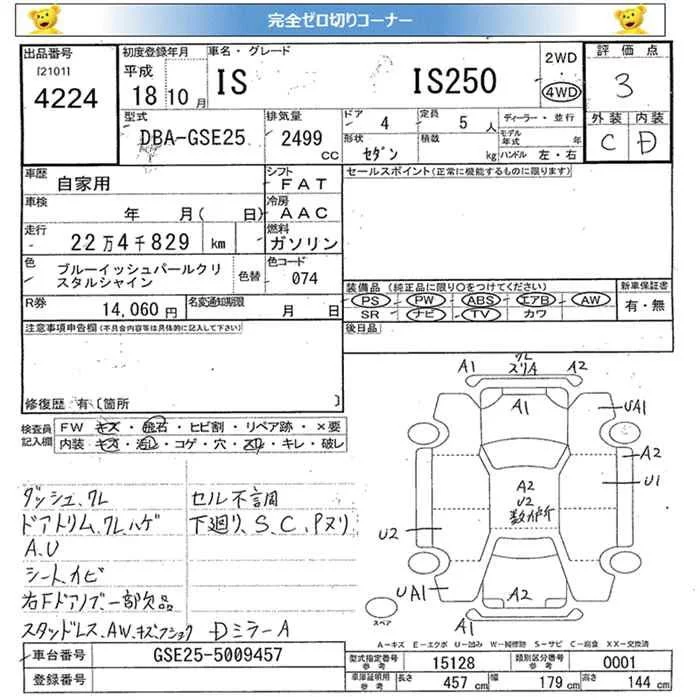 完全ゼロ切りコーナー
出品番号
[2101]
4224
初度登録年月
平成
18 10月
車名・グレード
IS IS250
2WD
4WD
評価点
3
外装 内装
C D
型式
DBA-GSE25
排気量
2499
CC
ドア
4
定員
5人
形状
セダン
積載
kg
ディーラー・並行
モデル年式 年
ハンドル 左・右
車歴
自家用
シフト
FAT
車検
年 月( 日)
冷房
AAC
走行
22万4千829 km
燃料
ガソリン
色
ブルーイッシュパールクリスタルシャイン
色替
色コード
074
R券
14,060円
名変通知期限
月 日
セールスポイント(正常に機能するものに限ります)
装備品(純正品に限り○をつけてください)
PS PW ABS エアB AW
SR ナビ TV カワ
新車保証書
有・無
後日品
注意事項申告欄(不具合内容等は具体的に記入して下さい)
修復歴 有〔箇所 〕
検査員記入欄
FW キズ・飛石・ヒビ割・リペア跡・×要
内装 キズ・汚レ・コゲ・穴・スレ・キレ・破レ
ダッシュ、クレ
ドアトリム、クレ、ハゲ
A、U
シート、カビ
右Fドアノブ、一部欠品
スタッドレス、AW、キズ
セル不調
下廻り、S、C、Pヌリ
DミラーA
A1
クレ
スリA
A2
A1
UA1
A2
U1
A2
U2
数ヶ所
U2
UA1
A2
A1
スペア
A-キズ E-エクボ U-凹み W-補修跡 S-サビ C-腐食 XX-交換済
車台番号
GSE25-5009457
登録番号
型式指定番号
参考
15128
類別区分番号
参考
0001
車庫証明用
参考
長さ
457 cm
幅
179 cm
高さ
144 cm